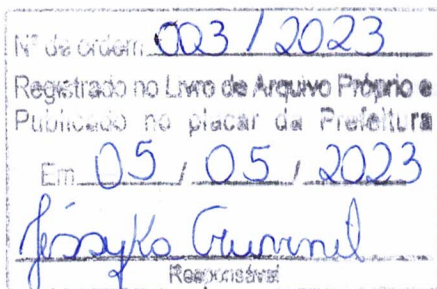 Nº de ordem 003 / 2023
Registrado no Livro de Arquivo Próprio e
Publicado no placar da Prefeitura
Em 05 / 05 / 2023
Responsável